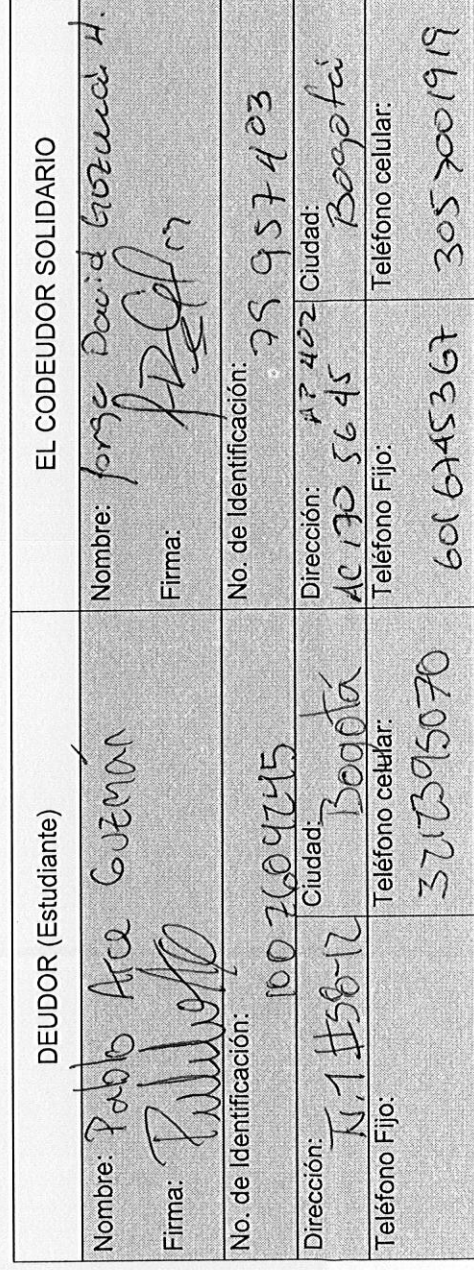 DEUDOR (Estudiante)
Nombre: Pablo Arce Guzmán
Firma:
No. de Identificación:
1007609245
Dirección: #58-12
Ciudad: Bogotá
Teléfono Fijo:
Teléfono celular:
3212395070
EL CODEUDOR SOLIDARIO
Nombre: Jorge David Guzmán H.
Firma:
No. de Identificación: 79 957403
Dirección: AP 402
AC 170 56 45
Ciudad:
Bogotá
Teléfono Fijo:
601 6745367
Teléfono celular:
305 7001919